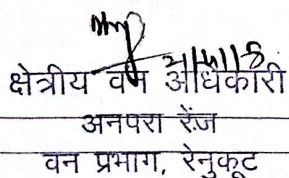 क्षेत्रीय वन अधिकारी
अनपरा रेंज
वन प्रभाग, रेनुकूट